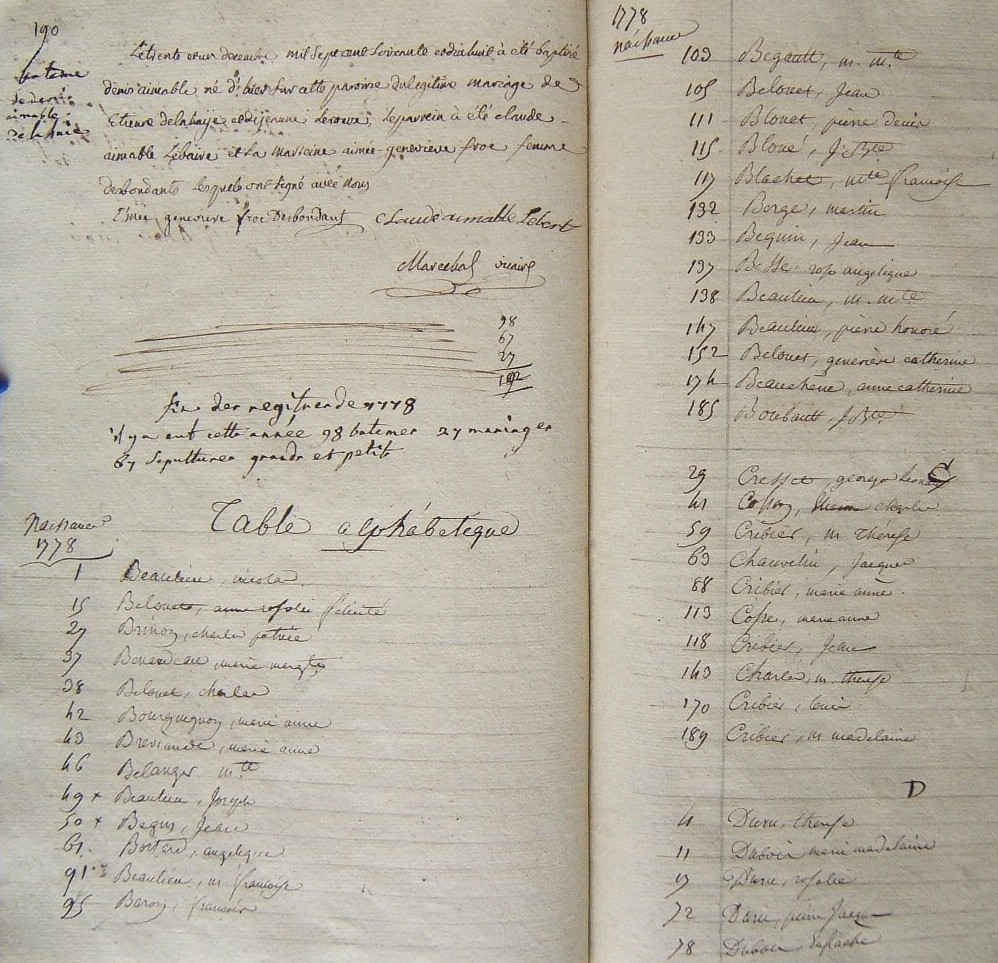 190
bateme
de denis
aimable
delahaie
Le trente et un decembre mil sept cent soixante et dix huit a été baptisé
denis aimable né d'hier sur cette paroisse du legitime mariage de
Etienne delahaye et de jeanne Leroux, Le parrein a été claude
aimable Lebaire et La marreine aimée genevieve froc femme
desbondants Lesquels ont signé avec nous
Emée genevieve froc Desbondant Claude aimable Lebert
Marechal vicaire
98
67
27
192
fin des registres de 1778
il y a eut cette année 98 batemes 27 mariages
67 Sepultures grands et petits
Table alphabetique
Naissances
1778
1 Beaulieu, nicolas
15 Belouet, anne rosalie felicité
27 Brinon, charles
37 marie margte
38 Belouet, charles
42 Bourguignon, marie anne
43 marie anne
46 Belanger mte
49 x Beaulieu, Joseph
50 x Begus, Jean
61 angelique
91 Beaulieu, m. françoise
95 Baron, françois
1778
naissance
103 Begault, m. mte
105 Belouet, Jean
111 Blouet, pierre denis
115 Bloué, J. Bte
117 Blachet, mte françoise
132 Borge, martin
133 Bequin, Jean
137 Besse rose angelique
138 Beaulieu, m. mte
147 Beaulieu, pierre honoré
152 Belouet, genevieve catherine
174 Beauchêne, anne catherine
185 J. Bte
C
29 Cresset, georges
41 charles
59 Cribier, m. Thérese
63 Chauvelin, Jacques
88 Cribier, marie anne
113 marie anne
118 Cribier, Jean
143 Charles, m. therese
170 Cribier, louis
189 Cribier, m madelaine
D
4 therese
11 Dubois marie madelaine
rosalie
72 pierre Jacques
78 Dubois